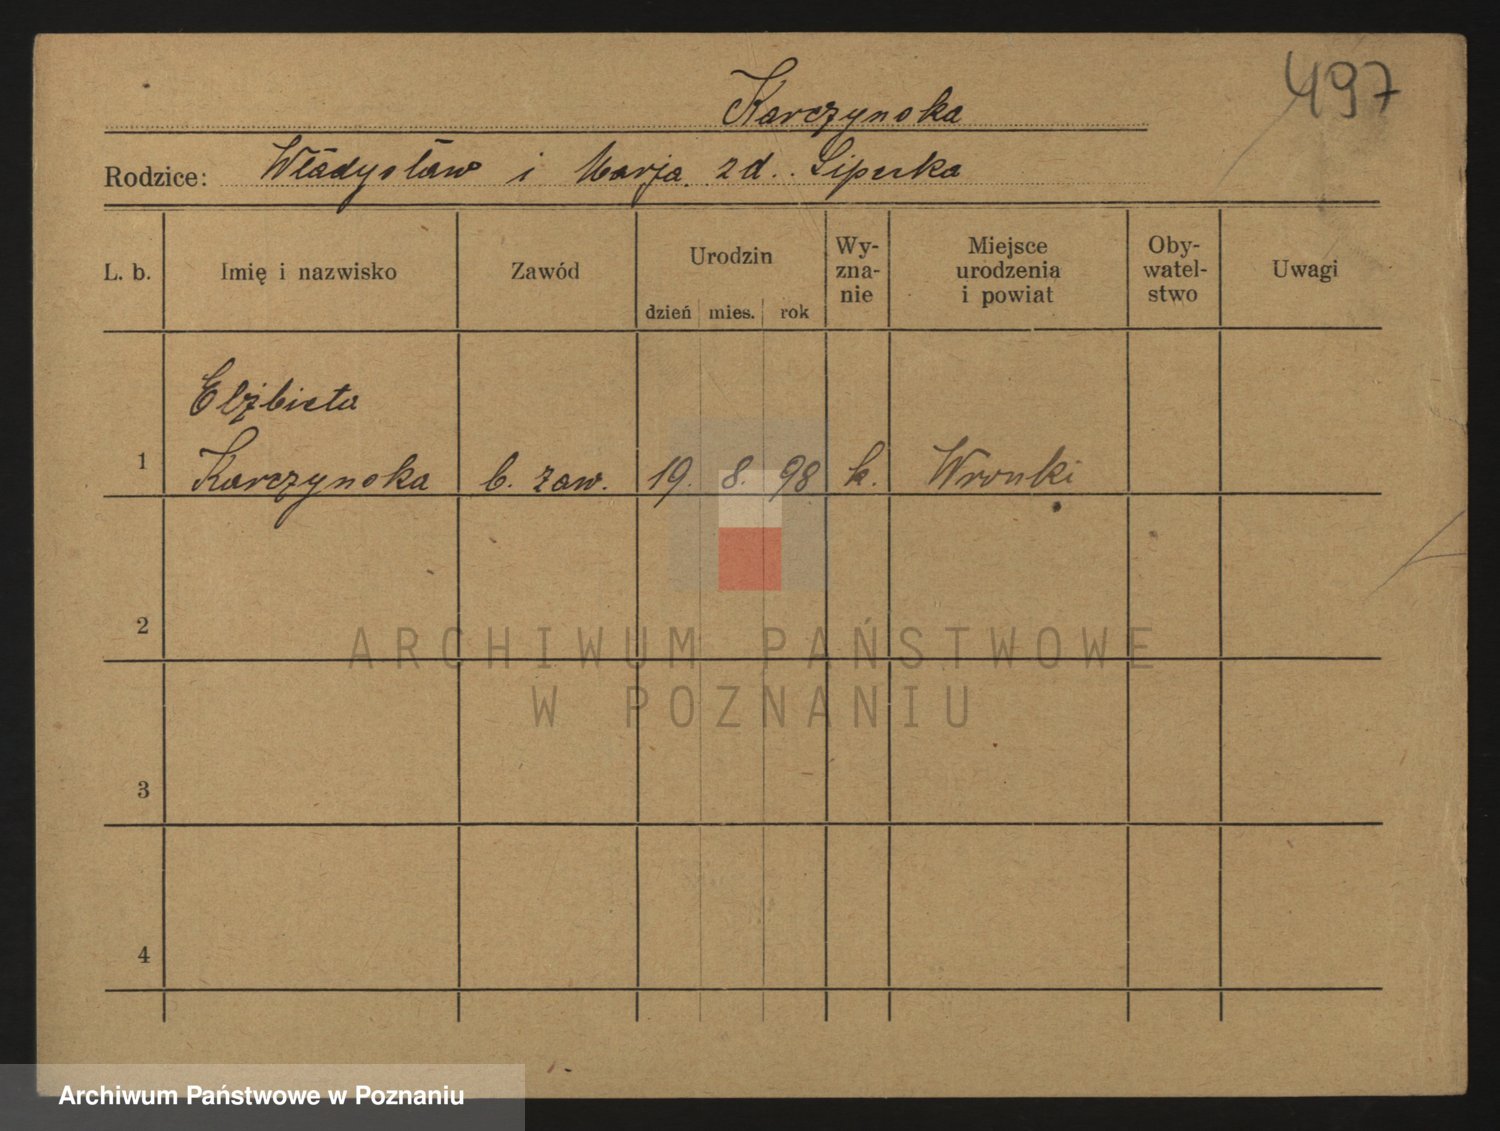 497
Karczynska
Rodzice: Władysław i Marja zd. Siperka
L. b. Imię i nazwisko Zawód Urodzin dzień mies. rok Wy-zna-nie Miejsce urodzenia i powiat Oby-watel-stwo Uwagi
Elżbieta
1 Karczynska b. zaw. 19. 8. 98 k. Wronki
2
ARCHIWUM PAŃSTWOWE
W POZNANIU
3
4
Archiwum Państwowe w Poznaniu